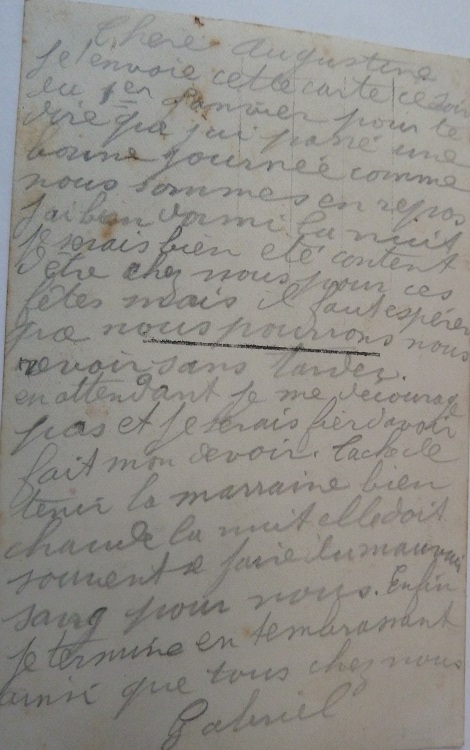 Chere Augustine
Je t'envoie cette carte ce soir
du 1er Janvier pour te
dire que j'ai passé une
bonne journée comme
nous sommes en repos
j'ai bien dormi la nuit
Je serais bien eté content
d'être chez nous pour ces
fêtes mais il faut espérer
que nous pourrons nous
revoir sans tarder.
en attendant je me décourage
pas et je serais fier d'avoir
fait mon devoir. Tache de
tenir la marraine bien
chaude la nuit elle doit
souvent se faire du mauvais
sang pour nous. Enfin
Je termine en t'embrassant
ainsi que tous chez nous
Gabriel